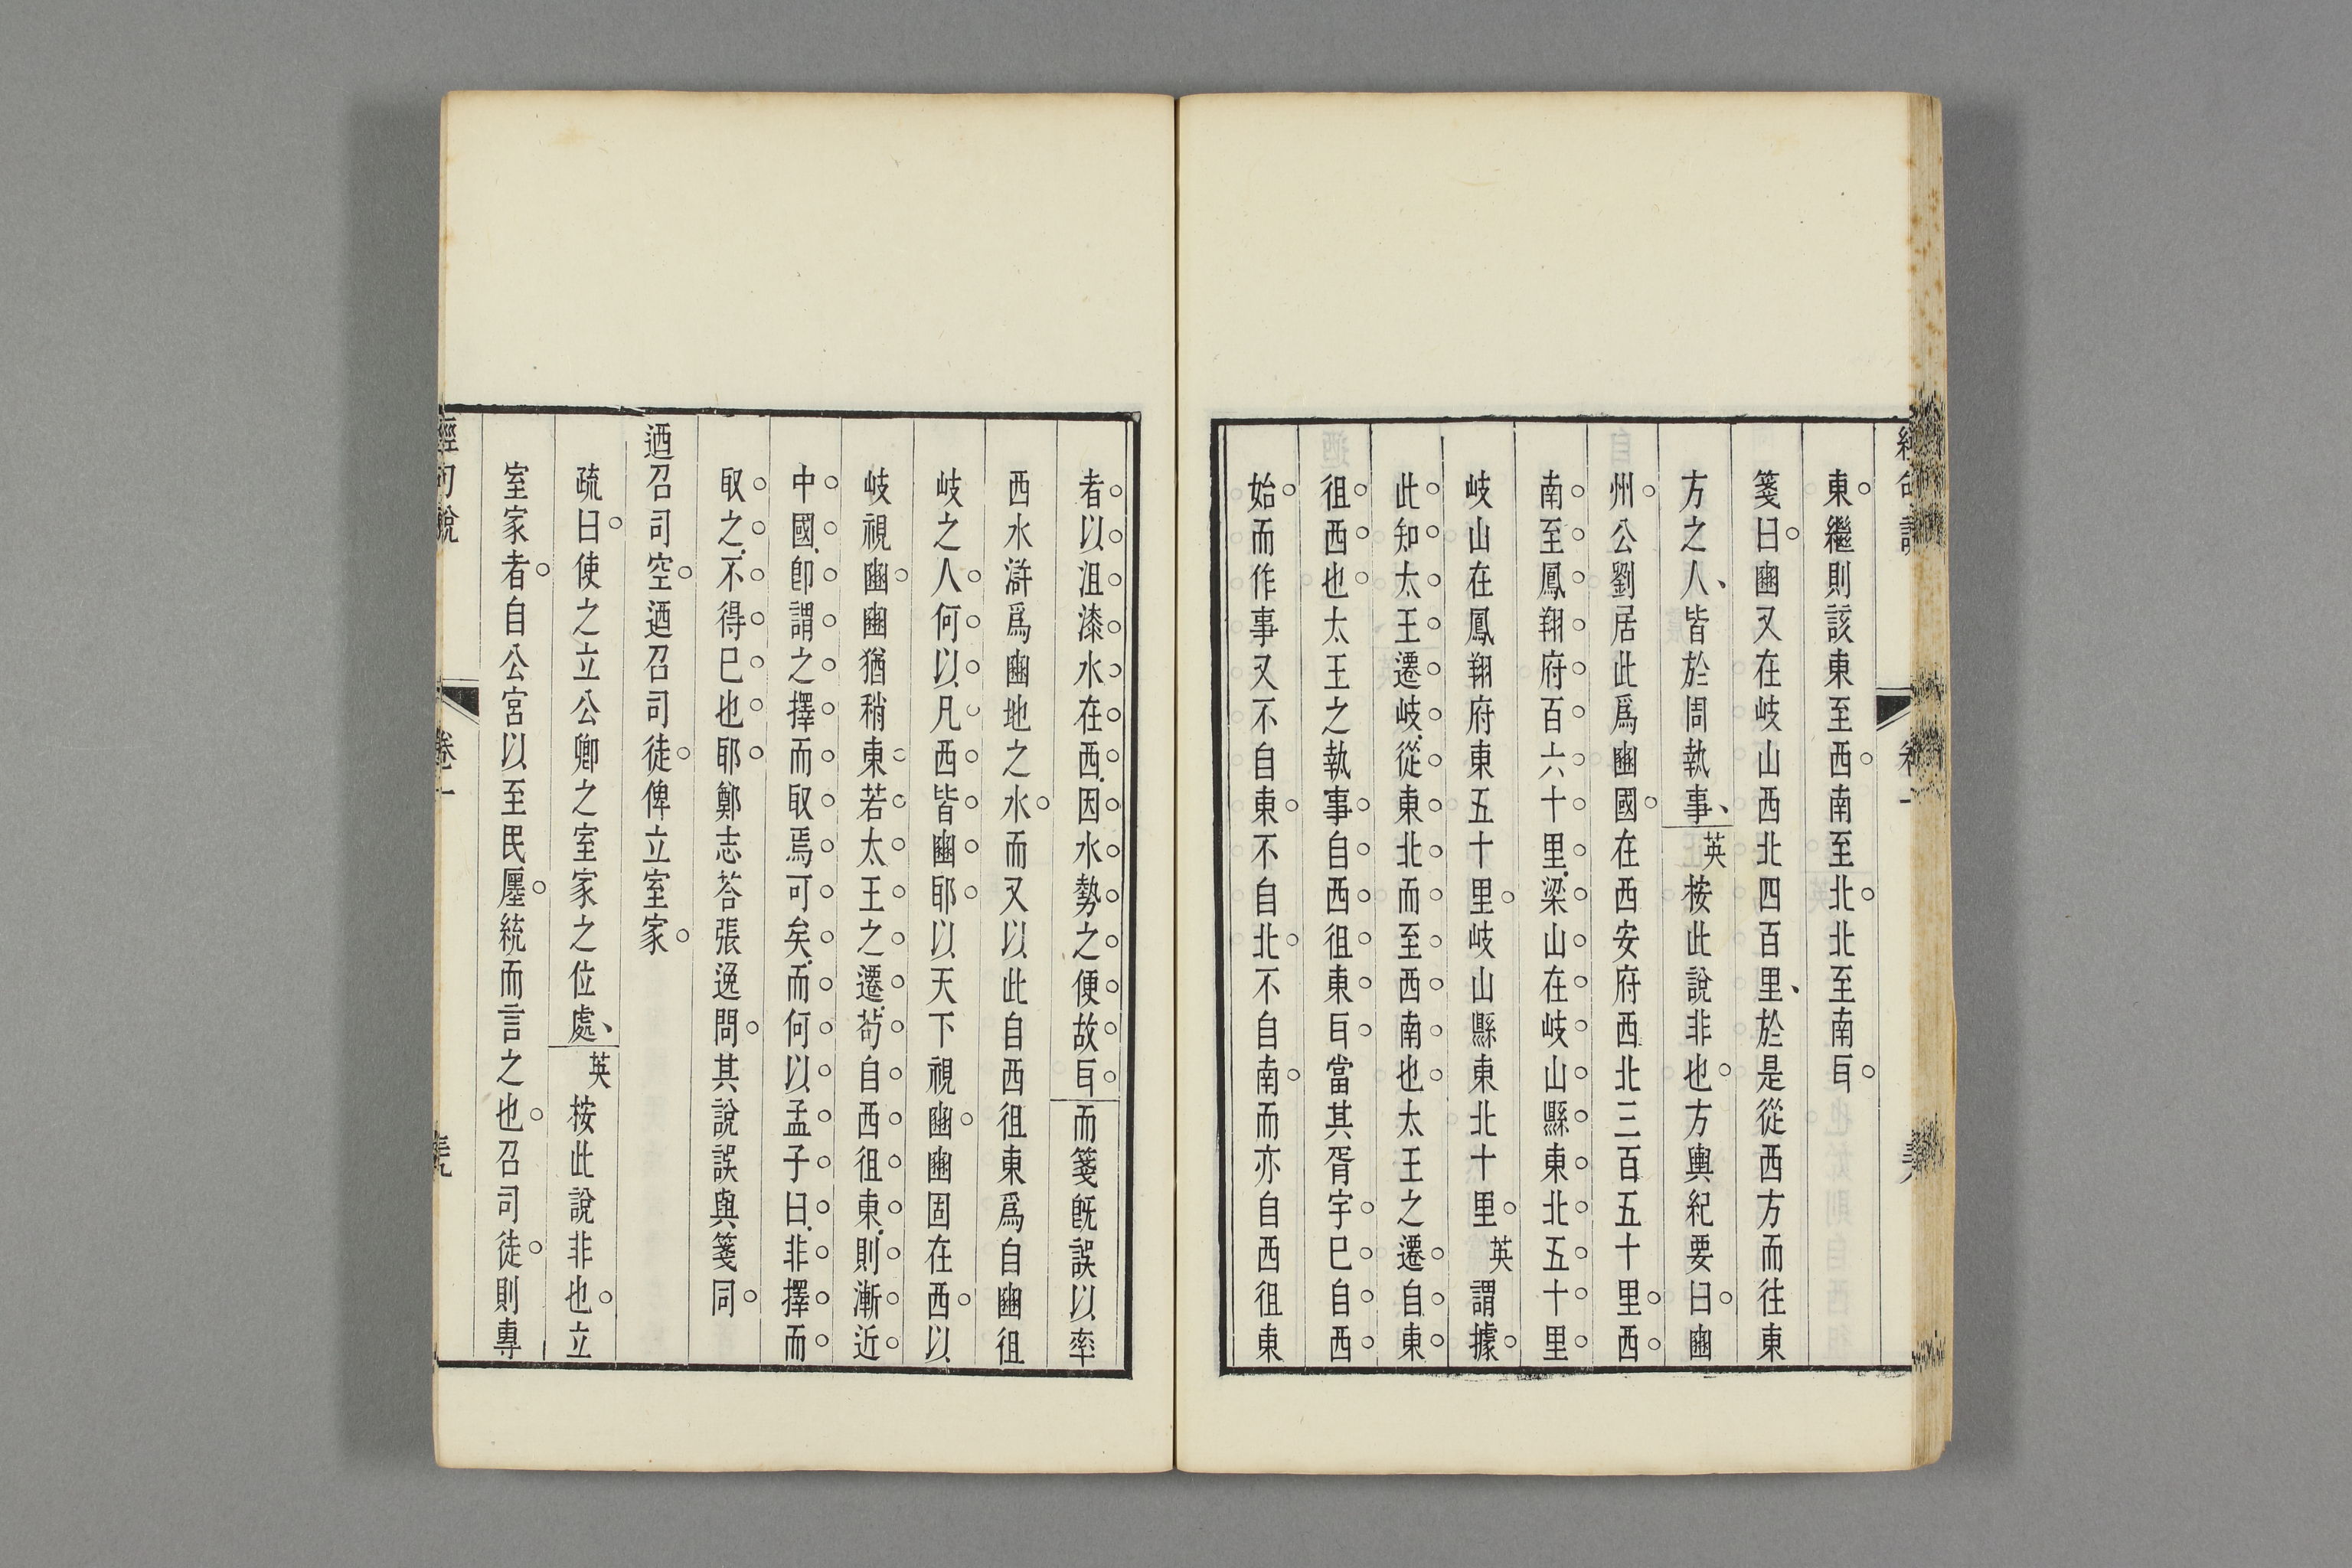 東繼則該東至西南至北北至南㠯
箋曰豳又在岐山西北四百里、於是從西方而往東
方之人、皆於周執事、英按此說非也方輿紀要曰豳
州公劉居此爲豳國在西安府西北三百五十里西
南至鳳翔府百六十里梁山在岐山縣東北五十里
岐山在鳳翔府東五十里岐山縣東北十里英謂據
此知太王遷岐從東北而至西南也太王之遷自東
徂西也太王之執事自西徂東㠯當其胥宇巳自西
始而作事又不自東不自北不自南而亦自西徂東
者以沮漆水在西因水勢之便故㠯而箋旣誤以率
西水滸爲豳地之水而又以此自西徂東爲自豳徂
岐之人何以凡西皆豳耶以天下視豳豳固在西以
岐視豳豳猶稍東若太王之遷苟自西徂東則漸近
中國卽謂之擇而取焉可矣而何以孟子曰非擇而
取之不得巳也耶鄭志荅張逸問其說誤與箋同
迺召司空迺召司徒俾立室家
疏曰使之立公卿之室家之位處、英按此說非也立
室家者自公宮以至民廛統而言之也召司徒則專
經句說
卷一